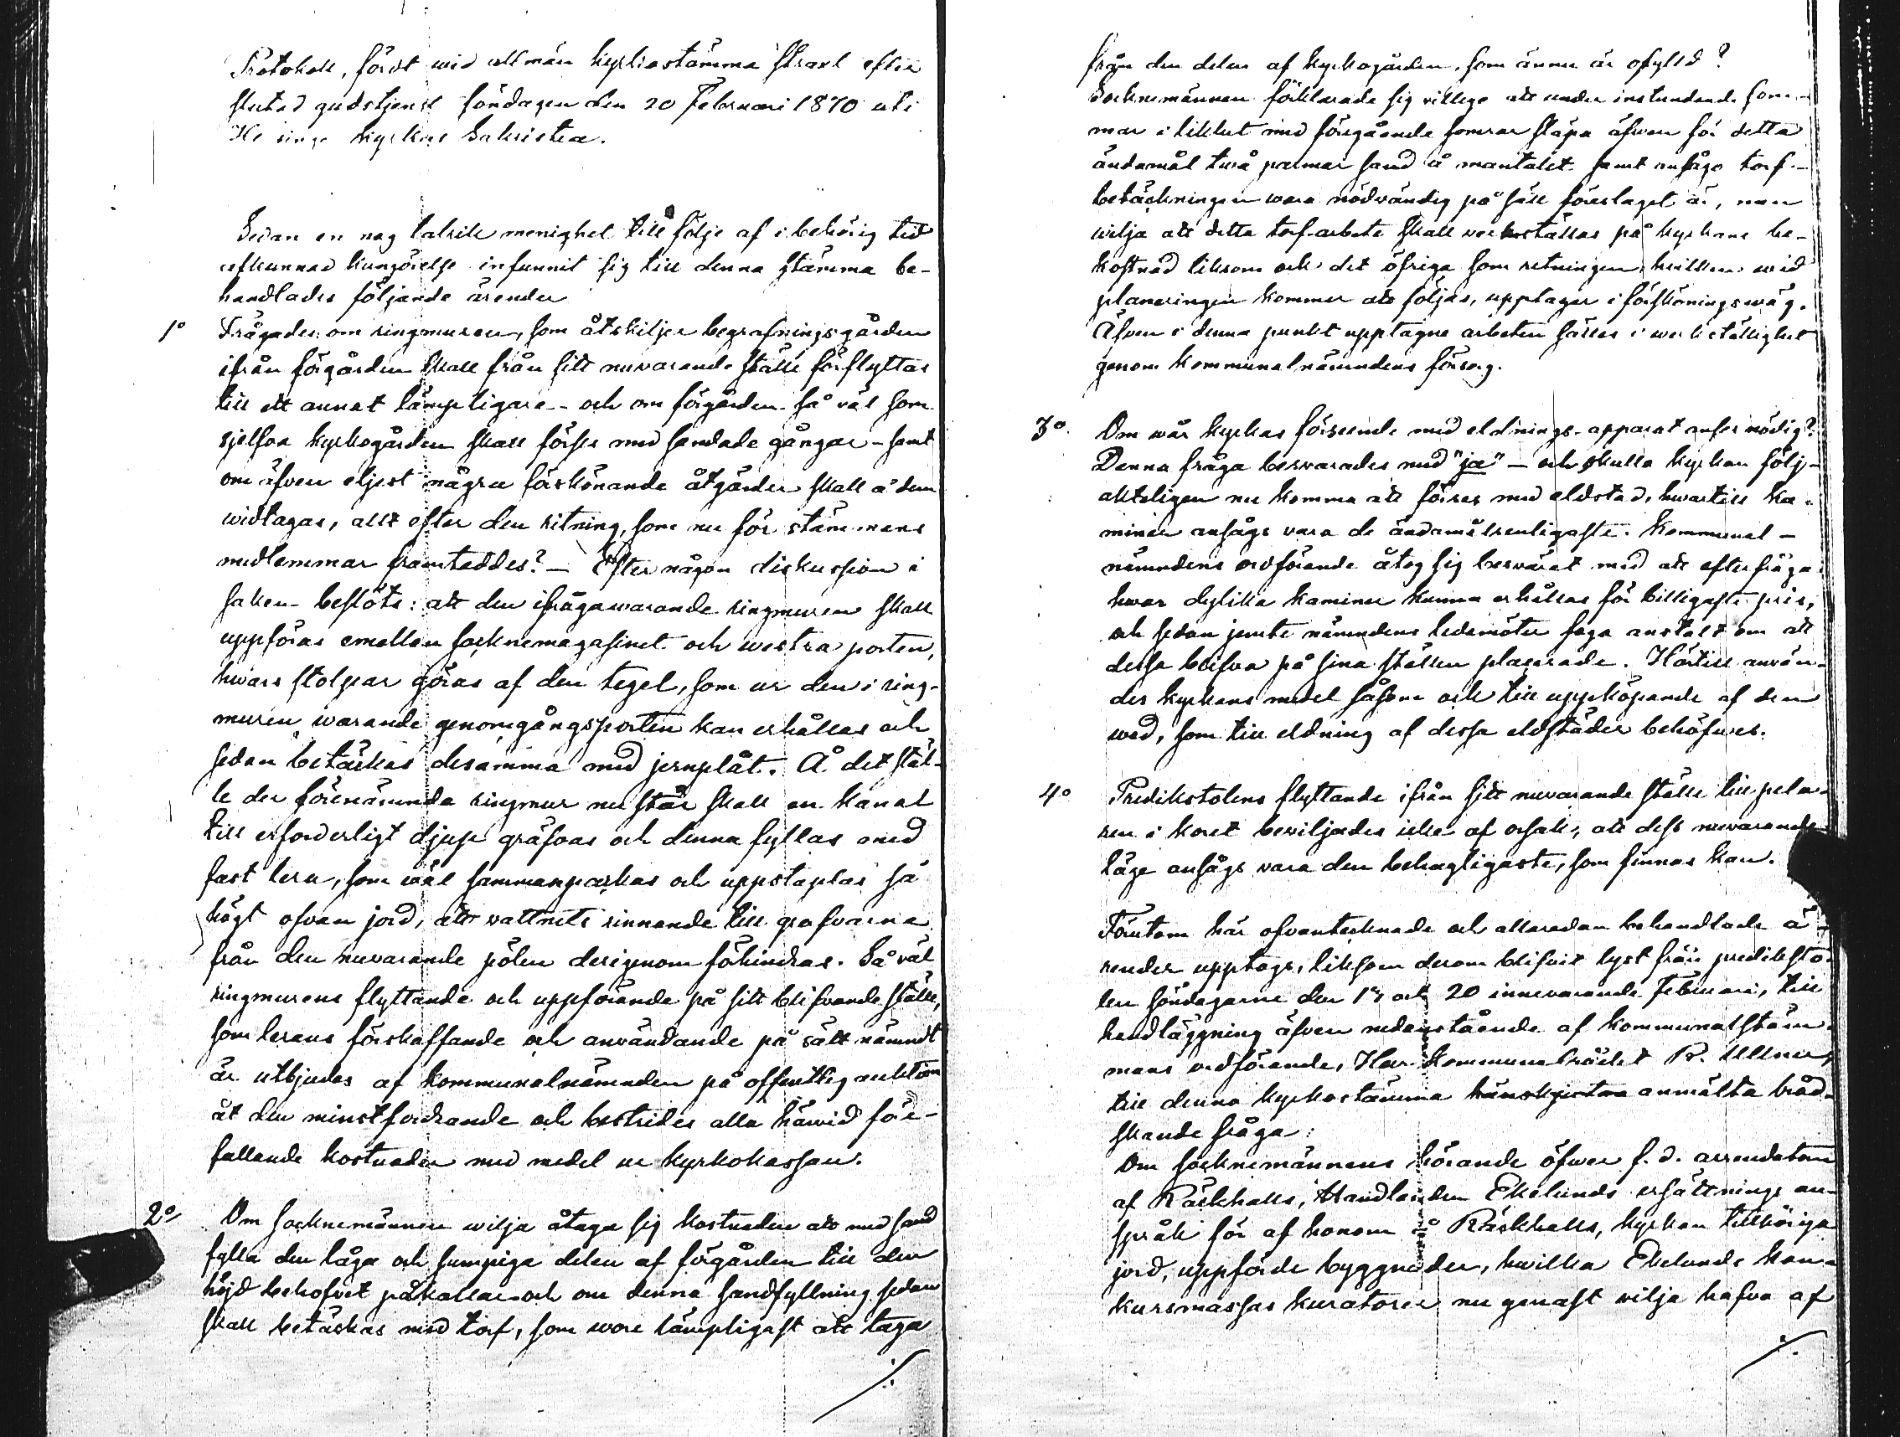 Protokoll, fördt wid allmän kyrkiostämma straxt efter
slutad gudstjenst söndagen den 20 Februari 1870 uti
He singe kyrkas Sakristia.
Sedan en nog talrik menighet till följe af i behörig tid
utkunnad kungörelse infunnit sig till denna stämma be-
handlades följande ärender
1o Frågades: om ringmuren, som åtskiljer begrafningsgården
ifrån förgården skall från sitt nuvarande ställe förflyttas
till ett annat lämpligare - och om förgården så väl som
sjelfva kyrkogården skall förses med sandade gångar - samt
om äfven eljest några förskönande åtgärder skall å dem
widtagas, allt efter den ritning, som nu för stämmans
medlemmar framteddes? - Efter någon diskussion i
saken beslöts: att den ifrågawarande ringmuren skall
uppföras emellan socknemagasinet och westra porten,
hwars stolpar göras af den tegel, som ur den i ring-
muren warande genomgångsporten kan erhållas och
sedan betäckas desamma med jernplåt. Å det stäl-
le der förenämnda ringmur nu står skall en kanal
till erforderligt djup gräfvas och denna fyllas med
fast lera, som wäl sammanpackas och uppstaplas så
högt ofvan jord, att vattnets rinnande till grafvarna
från den nuvarande pölen derigenom förhindras. Så väl
ringmurens flyttande och uppförande på sitt blifvande ställe,
som lerans förskaffande och användande på sätt nämndt
är utbjudes af kommunalnämnden på offentlig auktion
åt den minstfordrande och bestrides alla härwid före-
fallande kostnader med medel ur kyrkokassan.
2o Om socknemännen wilja åtaga sig kostnaden att med sand
fylla den låga och sumpiga delen af förgården till den
höjd behofvet påkallar och om denna sandfyllning sedan
skall betäckas med torf, som wore lämpligast att taga
./.
från den delen af kyrkogården, som ännu är ofylld?
Socknemännen förklarade sig villige att under instundande som-
mar i likhet med föregående somrar släpa äfven för detta
ändamål twå parmar sand å mantalet samt ansågo torf-
betäckningen wara nödvändig på sätt föreslaget är, men
wilja att detta torfarbete skall verkställas på kyrkans be-
kostnad liksom och det öfriga som ritningen, hvilken wid
planeringen kommer att följas, upptager i förskönings wäg.
Äfven i denna punkt upptagne arbeten sättes i werkställighet
genom kommunalnämndens försorg.
3o. Om wår kyrkas förseende med eldnings-apparat anses nödig?
Denna fråga besvarades med "ja" - och skulle kyrkan följ-
akteligen nu komma att förses med eldstad, hwartill ka-
miner ansågs vara de ändamålsenligaste. Kommunal-
nämndens ordförande åtog sig besväret med att efterfråga
hwar dylika kaminer kunna erhållas för billigaste pris,
och sedan jemte nämndens ledamöter foga anstalt om att
dessa blifva på sina ställen placerade. Härtill använ-
des kyrkans medel såsom och till uppköpande af den
wed, som till eldning af dessa eldstäder behöfwes.
4o Predikstolens flyttande ifrån sitt nuvarande ställe till pela-
ren i koret beviljades icke af orsak, att dess nuvarande
läge ansågs vara den behagligaste, som finnas kan.
Förutom här ofvantecknade och allaredan behandlade ä-
render upptogs, liksom derom blifvit lyst från prediksto-
len söndagarne den 13 och 20 innevarande Februari, till
handläggning äfven nedanstående af kommunalstäm-
mans ordförande, Herr Kommunalrådet R. Ullner,
till denna kyrkostämma hänskjutna anmälta bråd-
skande fråga:
Om socknemännens hörande öfwer f. d. arrendatorn
af Räckhalls, Handlanden Ekelunds ersättnings an-
språk för af honom å Räckhalls, kyrkan tillhöriga
jord, uppförde byggnader, hwilka Ekelunds kon-
kursmassas kuratorer nu genast wilja hafva af
./.